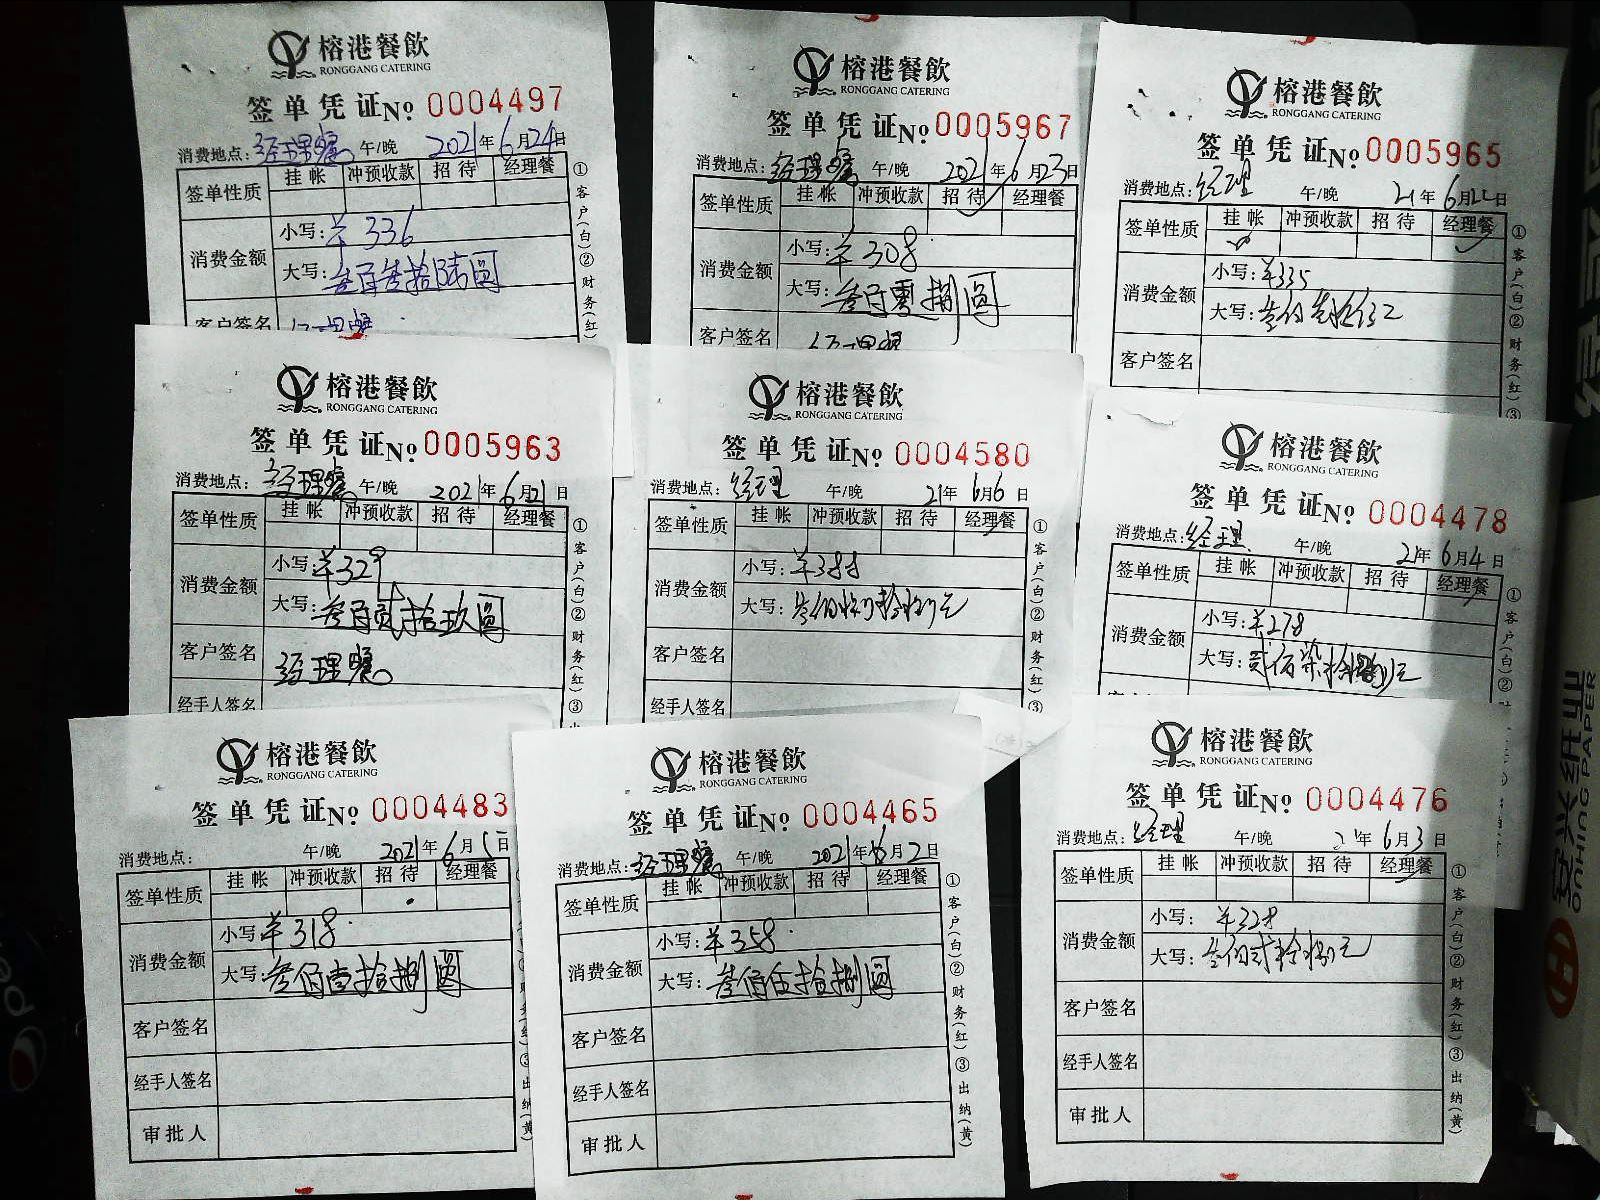 榕港餐飲
RONGGANG CATERING
签单凭证No 0004497
消费地点:经理餐 午/晚 2021年6月24日
签单性质 挂帐 冲预收款 招待 经理餐
消费金额 小写:¥336
大写:叁百叁拾陆圆
客户签名 经理餐
①客户(白)②财务(红)
榕港餐飲
RONGGANG CATERING
签单凭证No 0005967
消费地点:经理餐 午/晚 2021年6月23日
签单性质 挂帐 冲预收款 招待 经理餐
消费金额 小写:¥308
大写:叁百零捌圆
客户签名 经理餐
榕港餐飲
RONGGANG CATERING
签单凭证No 0005965
消费地点:经理 午/晚 21年6月22日
签单性质 挂帐 冲预收款 招待 经理餐
消费金额 小写:¥335
大写:叁佰叁拾伍
客户签名
①客户(白)②财务(红)③
榕港餐飲
RONGGANG CATERING
签单凭证No 0005963
消费地点:经理餐 午/晚 2021年6月21日
签单性质 挂帐 冲预收款 招待 经理餐
消费金额 小写:¥329
大写:叁百贰拾玖圆
客户签名 经理餐
经手人签名
①客户(白)②财务(红)③
榕港餐飲
RONGGANG CATERING
签单凭证No 0004580
消费地点:经理 午/晚 21年6月6日
签单性质 挂帐 冲预收款 招待 经理餐
消费金额 小写:¥388
大写:叁佰捌拾捌元
客户签名
经手人签名
①客户(白)②财务(红)③
榕港餐飲
RONGGANG CATERING
签单凭证No 0004478
消费地点:经理 午/晚 21年6月4日
签单性质 挂帐 冲预收款 招待 经理餐
消费金额 小写:¥278
大写:贰佰柒拾捌元
①客户(白)②
榕港餐飲
RONGGANG CATERING
签单凭证No 0004483
消费地点: 午/晚 2021年6月5日
签单性质 挂帐 冲预收款 招待 经理餐
消费金额 小写:¥318
大写:叁佰壹拾捌圆
客户签名
经手人签名
审批人
榕港餐飲
RONGGANG CATERING
签单凭证No 0004465
消费地点:经理餐 午/晚 2021年6月2日
签单性质 挂帐 冲预收款 招待 经理餐
消费金额 小写:¥358
大写:叁佰伍拾捌圆
客户签名
经手人签名
审批人
①客户(白)②财务(红)③出纳(黄)
榕港餐飲
RONGGANG CATERING
签单凭证No 0004476
消费地点:经理 午/晚 21年6月3日
签单性质 挂帐 冲预收款 招待 经理餐
消费金额 小写:¥328
大写:叁佰贰拾捌元
客户签名
经手人签名
审批人
①客户(白)②财务(红)③出纳(黄)